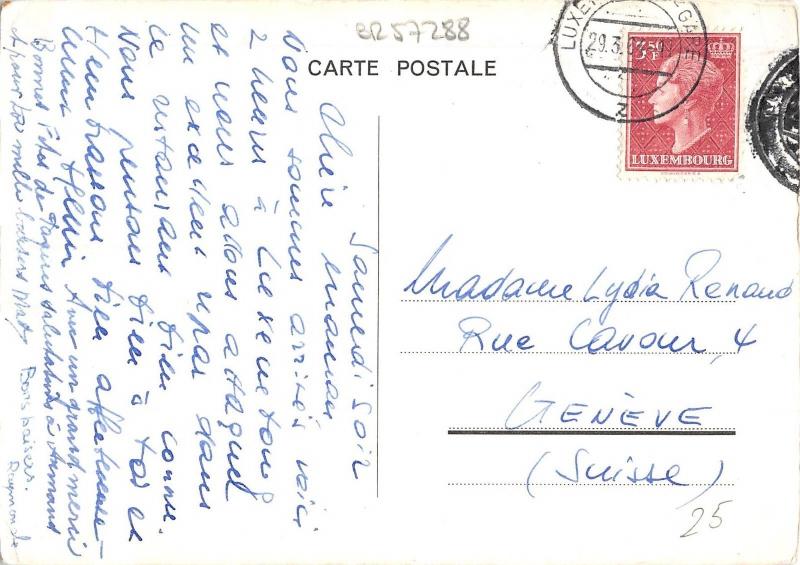 BR57288
CARTE POSTALE
LUXEMBOURG-GARE
29.3.
3F50
LUXEMBOURG
Samedi soir
Chère maman
Nous sommes arrivés voici
2 heures à Luxembourg
et nous allons attaquer
un excellent repas dans
ce restaurant bien connu.
Nous pensons bien à toi et
t'embrassons bien affectueuse-
ment Henri Ann un grand merci
Bonnes Fêtes de Pâques salutations à Armand
et pour toi mille baisers Mady
Bons baisers.
Raymonde
Madame Lydia Renaud
Rue Cavour, 4
GENÈVE
(Suisse)
25